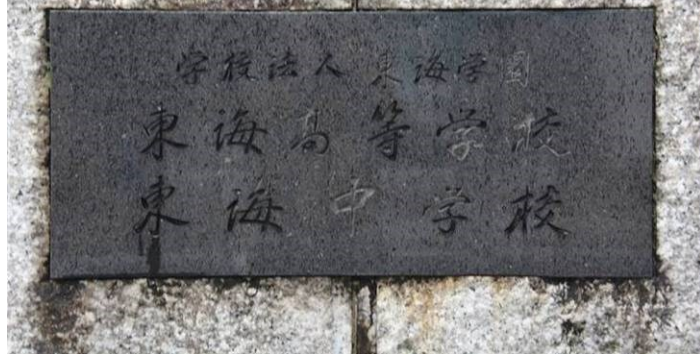 学校法人 東海学園
東海高等学校
東海中学校